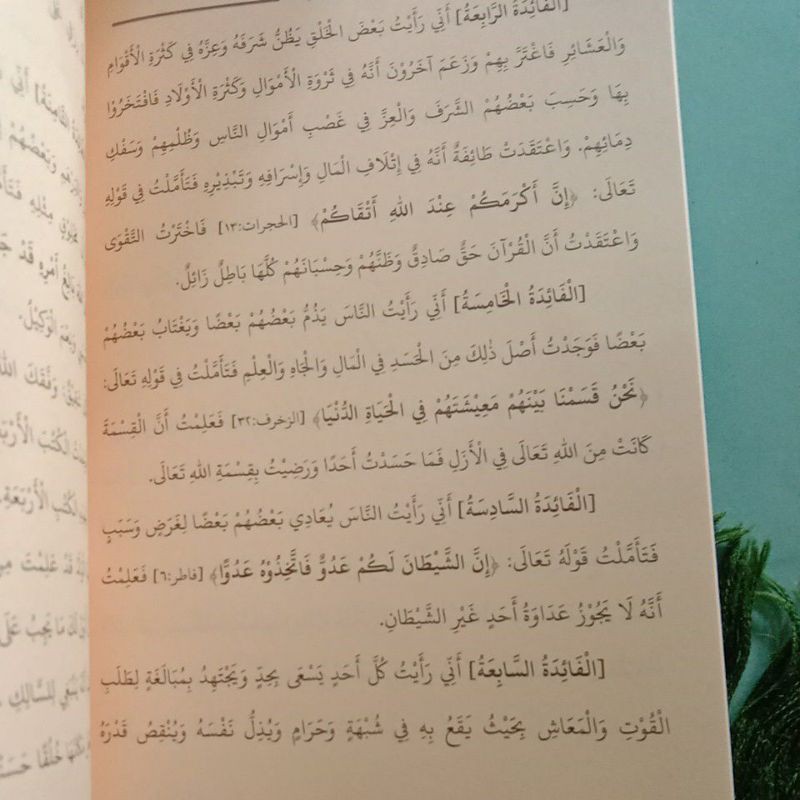 [الْفَائِدَةُ الرَّابِعَةُ] أَنِّي رَأَيْتُ بَعْضَ الْخَلْقِ يَظُنُّ شَرَفَهُ وَعِزَّهُ فِي كَثْرَةِ الْأَقْوَامِ
وَالْعَشَائِرِ فَاغْتَرَّ بِهِمْ وَزَعَمَ آخَرُوْنَ أَنَّهُ فِي ثَرْوَةِ الْأَمْوَالِ وَكَثْرَةِ الْأَوْلَادِ فَافْتَخَرُوْا
بِهَا وَحَسِبَ بَعْضُهُمْ الشَّرَفَ وَالْعِزَّ فِي غَصْبِ أَمْوَالِ النَّاسِ وَظُلْمِهِمْ وَسَفْكِ
دِمَائِهِمْ. وَاعْتَقَدَتْ طَائِفَةٌ أَنَّهُ فِي إِتْلَافِ الْمَالِ وَإِسْرَافِهِ وَتَبْذِيْرِهِ فَتَأَمَّلْتُ فِي قَوْلِهِ
تَعَالَى: ﴿إِنَّ أَكْرَمَكُمْ عِنْدَ اللهِ أَتْقَاكُمْ﴾ [الحجرات:١٣] فَاخْتَرْتُ التَّقْوَى
وَاعْتَقَدْتُ أَنَّ الْقُرْآنَ حَقٌّ صَادِقٌ وَظَنَّهُمْ وَحِسْبَانَهُمْ كُلَّهَا بَاطِلٌ زَائِلٌ.
[الْفَائِدَةُ الْخَامِسَةُ] أَنِّي رَأَيْتُ النَّاسَ يَذُمُّ بَعْضُهُمْ بَعْضًا وَيَغْتَابُ بَعْضُهُمْ
بَعْضًا فَوَجَدْتُ أَصْلَ ذٰلِكَ مِنَ الْحَسَدِ فِي الْمَالِ وَالْجَاهِ وَالْعِلْمِ فَتَأَمَّلْتُ فِي قَوْلِهِ تَعَالَى:
﴿نَحْنُ قَسَمْنَا بَيْنَهُمْ مَعِيْشَتَهُمْ فِي الْحَيَاةِ الدُّنْيَا﴾ [الزخرف:٣٢] فَعَلِمْتُ أَنَّ الْقِسْمَةَ
كَانَتْ مِنَ اللهِ تَعَالَى فِي الْأَزَلِ فَمَا حَسَدْتُ أَحَدًا وَرَضِيْتُ بِقِسْمَةِ اللهِ تَعَالَى.
[الْفَائِدَةُ السَّادِسَةُ] أَنِّي رَأَيْتُ النَّاسَ يُعَادِي بَعْضُهُمْ بَعْضًا لِغَرَضٍ وَسَبَبٍ
فَتَأَمَّلْتُ قَوْلَهُ تَعَالَى: ﴿إِنَّ الشَّيْطَانَ لَكُمْ عَدُوٌّ فَاتَّخِذُوْهُ عَدُوًّا﴾ [فاطر:٦] فَعَلِمْتُ
أَنَّهُ لَا يَجُوْزُ عَدَاوَةُ أَحَدٍ غَيْرِ الشَّيْطَانِ.
[الْفَائِدَةُ السَّابِعَةُ] أَنِّي رَأَيْتُ كُلَّ أَحَدٍ يَسْعَى بِجِدٍّ وَيَجْتَهِدُ بِمُبَالَغَةٍ لِطَلَبِ
الْقُوْتِ وَالْمَعَاشِ بِحَيْثُ يَقَعُ بِهِ فِي شُبْهَةٍ وَحَرَامٍ وَيُذِلُّ نَفْسَهُ وَيُنْقِصُ قَدْرَهُ